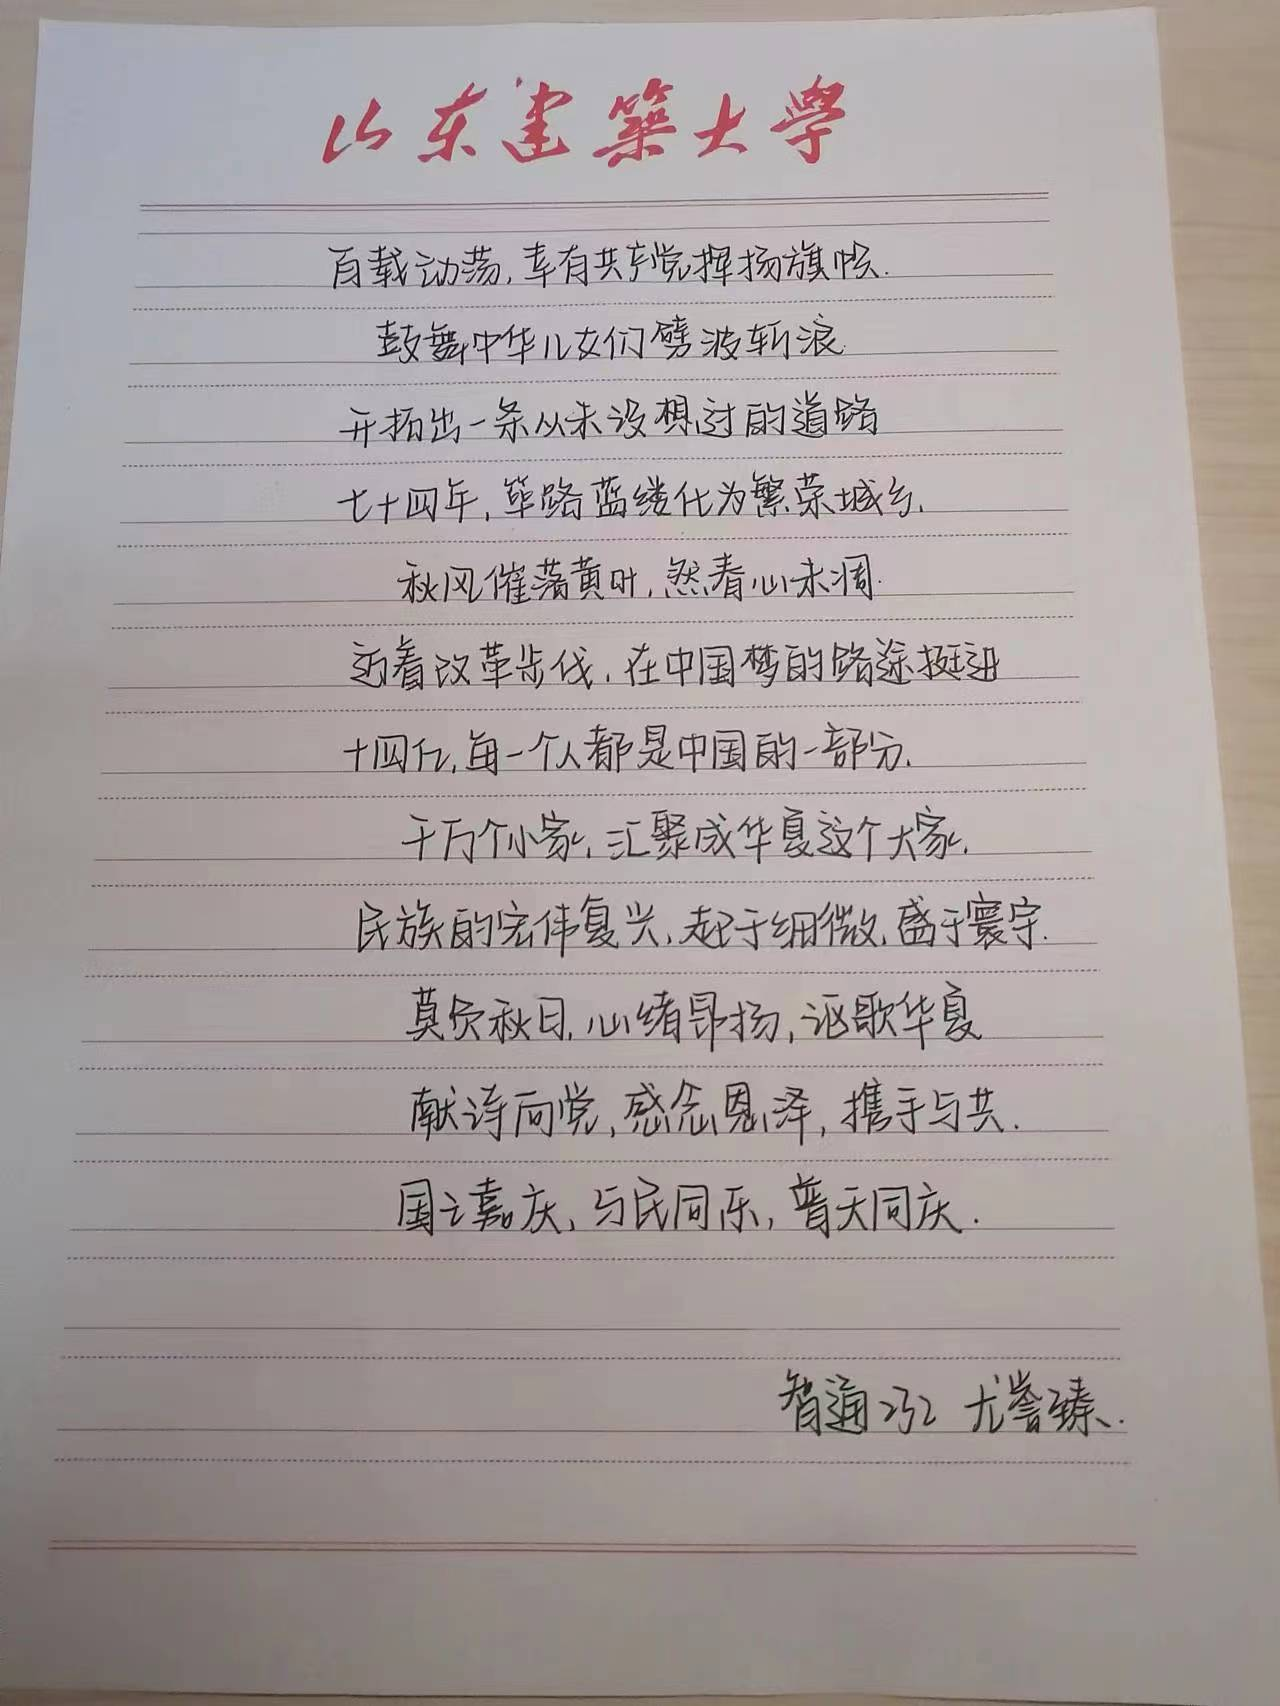 山东建筑大学
百载动荡,幸有共产党挥扬旗帜.
鼓舞中华儿女们劈波斩浪
开拓出一条从未设想过的道路
七十四年,筚路蓝缕化为繁荣城乡.
秋风催落黄叶,然春心未凋.
迈着改革步伐,在中国梦的路途挺进
十四亿,每一个人都是中国的一部分.
千万个小家,汇聚成华夏这个大家.
民族的宏伟复兴,起于细微,盛于寰宇.
莫负秋日,心绪昂扬,讴歌华夏
献诗向党,感念恩泽,携手与共.
国之嘉庆,与民同乐,普天同庆.
智通232 尤誉臻.